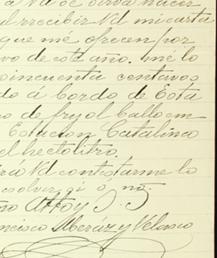 a Vd se sirva hacer
al recibir Vd mi carta
que me ofrecen por
vo de este año. me lo
cincuenta centavos
do á bordo de Esta
ro de frijol ballo em
Estacion Catalina
el hectolitro.
rá Vd contestarme lo
esolver si ó no.
Atto y S. S.
ncisco y Velasco